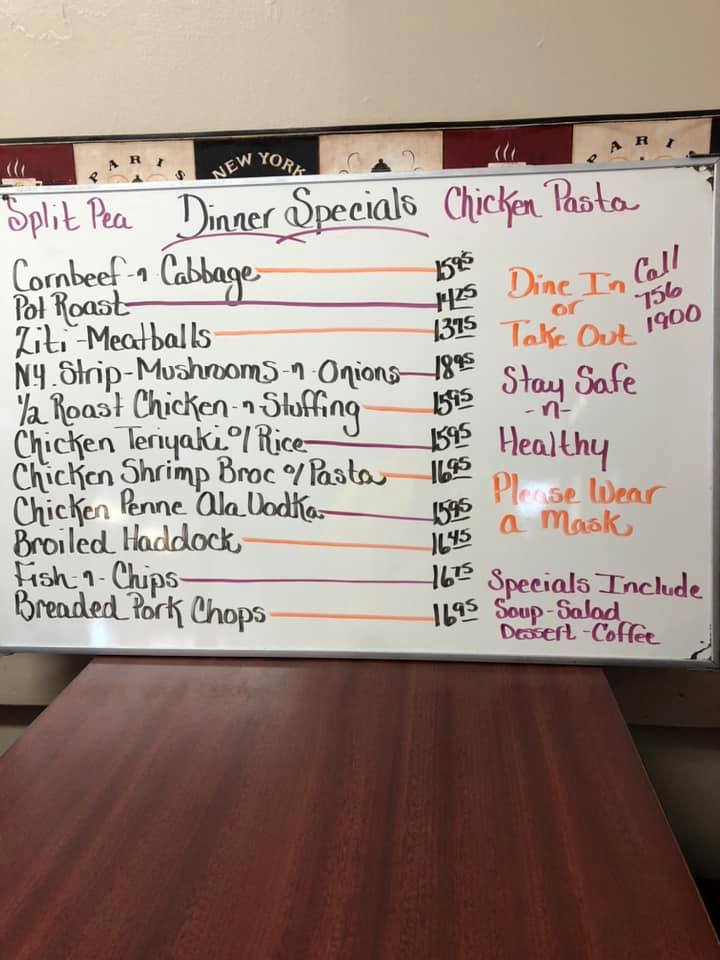 PARIS
NEW YORK
PARIS
Split Pea Dinner Specials Chicken Pasta
Cornbeef-n Cabbage 15.95
Pot Roast 14.25
Ziti-Meatballs 13.75
NY. Strip-Mushrooms-n-Onions 18.95
1/2 Roast Chicken-n-Stuffing 15.95
Chicken Teriyaki o/ Rice 15.95
Chicken Shrimp Broc o/ Pasta 16.95
Chicken Penne Ala Vodka 15.95
Broiled Haddock 16.45
Fish-n-Chips 16.75
Breaded Pork Chops 16.95
Dine In
or
Take Out
Call
756
1900
Stay Safe
-n-
Healthy
Please Wear
a Mask
Specials Include
Soup-Salad
Dessert-Coffee